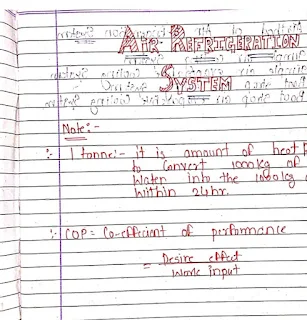 AIR REFRIGERATION
SYSTEM
Note:-
1 tonne:- it is amount of heat
to convert 1000kg of
water into the 1000kg
within 24hr.
COP = Co-efficient of performance
= Desire effect
work input